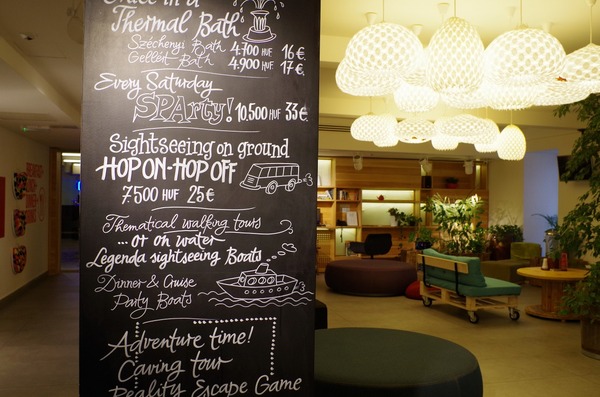 in a
Thermal Bath
Széchenyi Bath 4.700 HUF 16 €
Gellért Bath 4.900 HUF 17 €
Every Saturday
SPArty! 10.500 HUF 33 €
Sightseeing on ground
HOP ON-HOP OFF
7.500 HUF 25 €
Thematical walking tours
...or on water
Legenda sightseeing Boats
Dinner & Cruise
Party Boats
Adventure time!
Caving tour
Reality Escape Game